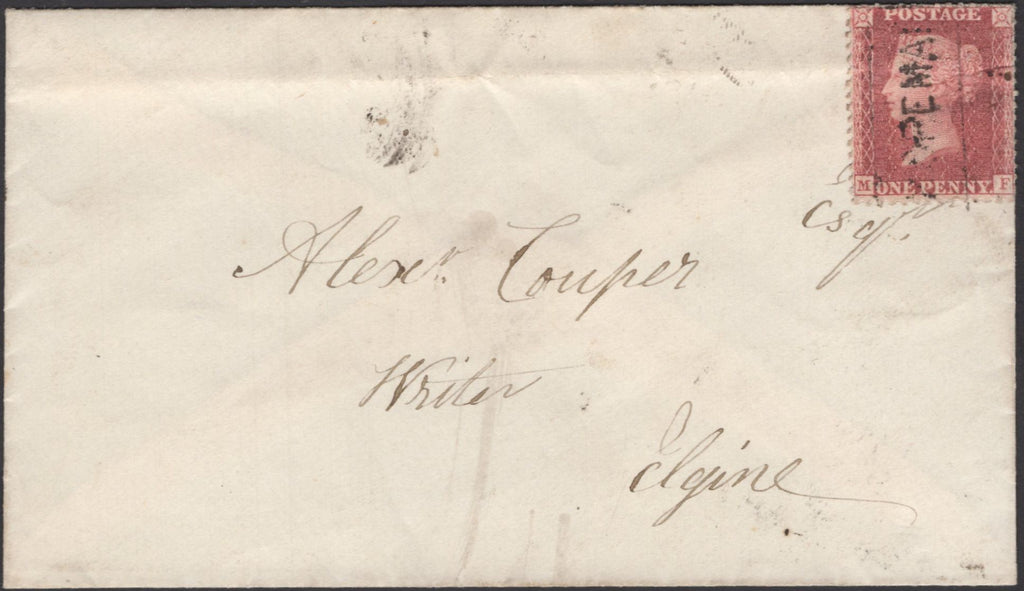 POSTAGE
M ONE PENNY F
Alexr. Couper Esqr.
Writer
Elgine